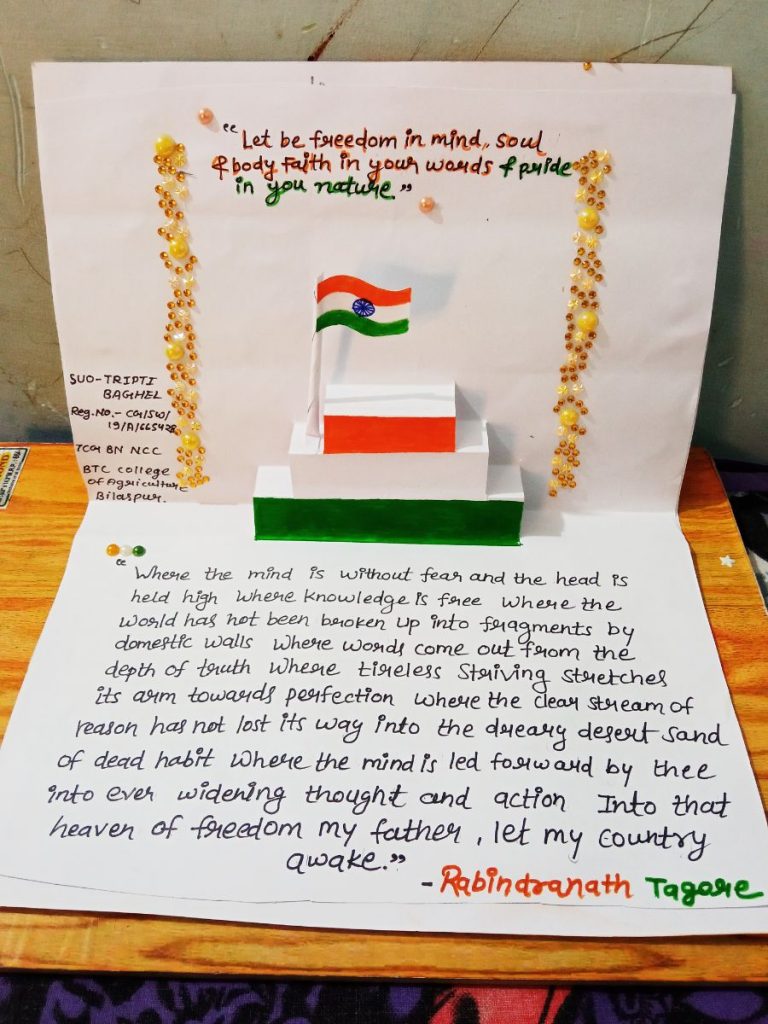 "Let be freedom in mind, soul
& body Faith in your words & pride
in you nature."
SUO-TRIPTI
BAGHEL
Reg.No.- CG/SW/
19/A/665428
7CG BN NCC
BTC College
of Agriculture
Bilaspur.
"Where the mind is without fear and the head is
held high where knowledge is free where the
world has not been broken up into fragments by
domestic walls where words come out from the
depth of truth where tireless striving stretches
its arm towards perfection where the clear stream of
reason has not lost its way into the dreary desert sand
of dead habit where the mind is led forward by thee
into ever widening thought and action Into that
heaven of freedom my father, let my country
awake."
- Rabindranath Tagore